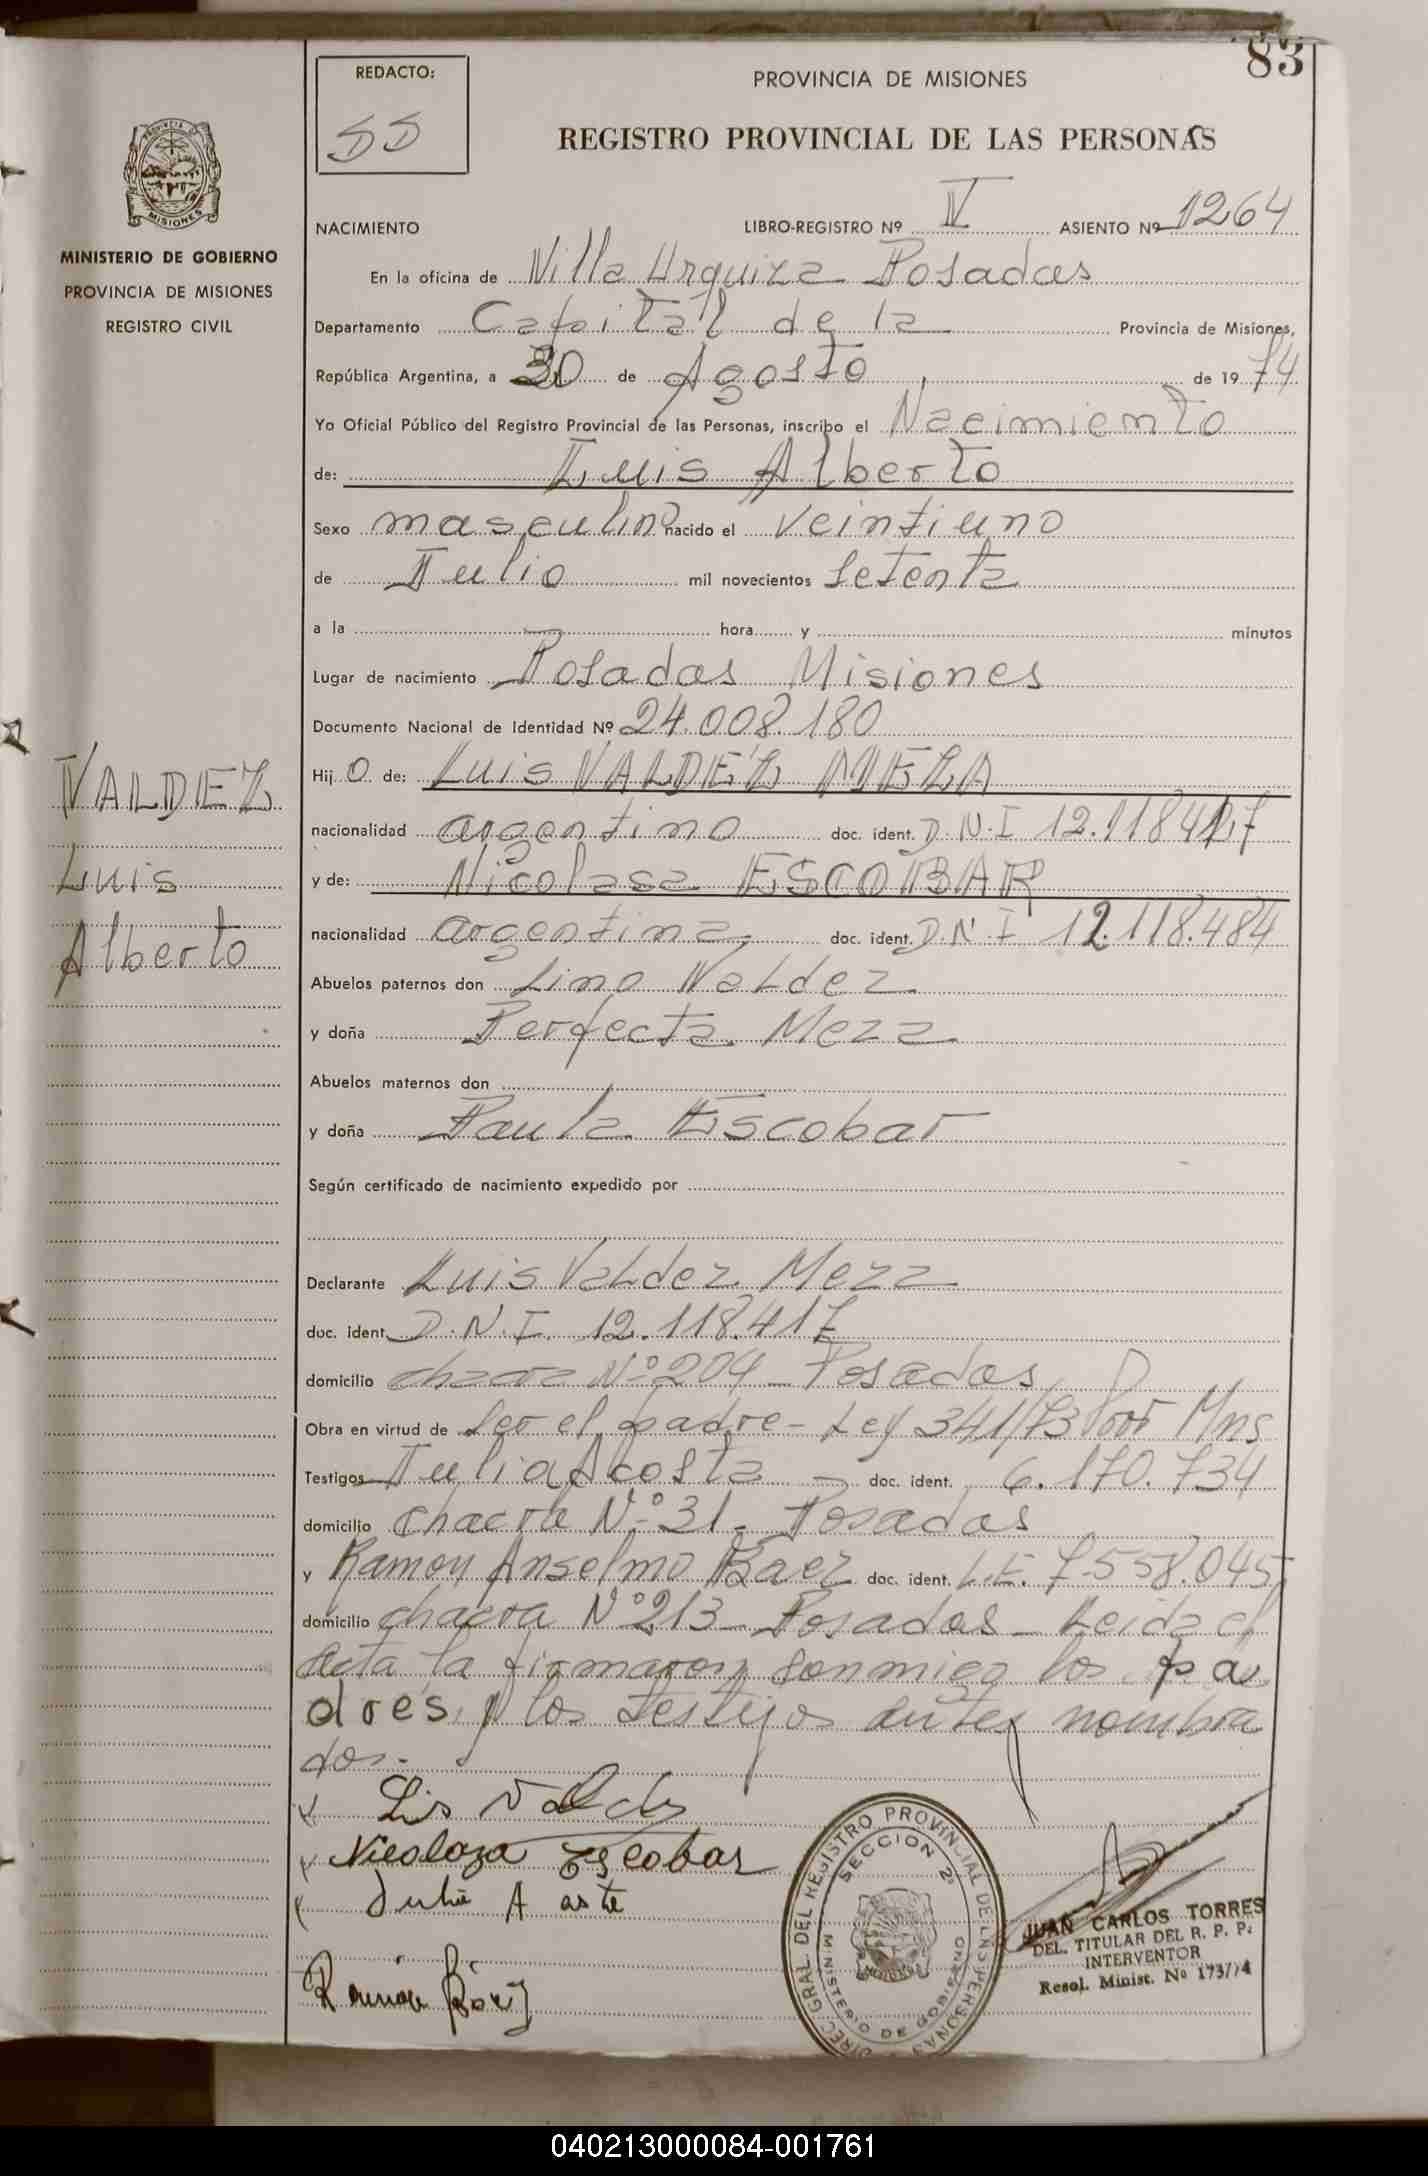 83
REDACTO:
PROVINCIA DE MISIONES
REGISTRO PROVINCIAL DE LAS PERSONAS
PROVINCIA DE
MISIONES
MINISTERIO DE GOBIERNO
PROVINCIA DE MISIONES
REGISTRO CIVIL
NACIMIENTO LIBRO-REGISTRO Nº V ASIENTO Nº 1264
En la oficina de Villa Urquiza Posadas
Departamento Capital de la Provincia de Misiones,
República Argentina, a 30 de Agosto, de 1974
Yo Oficial Público del Registro Provincial de las Personas, inscribo el Nacimiento
de: Luis Alberto
Sexo masculino nacido el veintiuno
de Julio mil novecientos setenta
a la hora y minutos
Lugar de nacimiento Posadas Misiones
Documento Nacional de Identidad Nº 24.008.180
Hijo de: Luis VALDEZ MEZA
nacionalidad argentino doc. ident. D.N.I 12.118417
y de: Nicolasa ESCOBAR
nacionalidad argentina doc. ident. D.N.I 12.118.484
Abuelos paternos don Lino Valdez
y doña Perfecta Meza
Abuelos maternos don
y doña Paula Escobar
Según certificado de nacimiento expedido por
Declarante Luis Valdez Meza
doc. ident. D.N.I. 12.118.417
domicilio chacra Nº 204 - Posadas
Obra en virtud de ser el padre - Ley 341/73 Port Mns
Testigos Julia Acosta - doc. ident. 6.170.734
domicilio chacra Nº 31 - Posadas
y Ramon Anselmo Baez doc. ident. L.E. 7.558.045
domicilio chacra Nº 213 - Posadas - Leida el
acta la firmaron conmigo los pa
dres y los testigos antes nombra
dos.-
VALDEZ
Luis
Alberto
Lis Valdez
Nicolaza Escobar
Julia A
Ramon Báez
DIREC. GRAL. DEL REGISTRO PROVINCIAL DE LAS PERSONAS
SECCION 2ª
MINISTERIO DE GOBIERNO
JUAN CARLOS TORRES
DEL. TITULAR DEL R. P. P.
INTERVENTOR
Resol. Minist. Nº 173/74
040213000084-001761